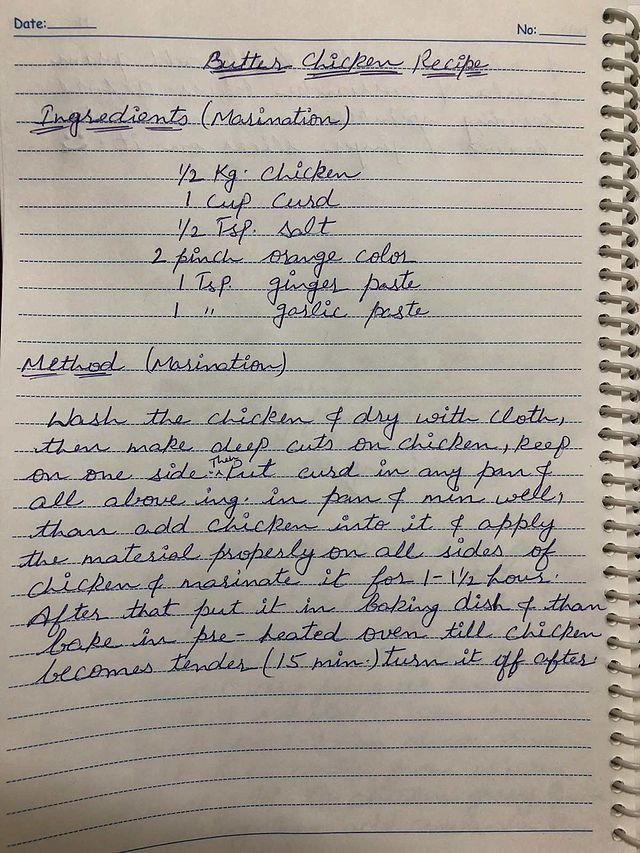 Date:
No:
Butter Chicken Recipe
Ingredients (Marination)
1/2 Kg. Chicken
1 Cup Curd
1/2 Tsp. Salt
2 pinch orange color
1 Tsp. ginger paste
1 " garlic paste
Method (Marination)
Wash the chicken & dry with cloth,
then make deep cuts on chicken, keep
on one side. Then Put curd in any pan &
all above ing. in pan & min well,
than add chicken into it & apply
the material properly on all sides of
chicken & marinate it for 1-1½ hour.
After that put it in baking dish & than
bake in pre-heated oven till chicken
becomes tender (15 min.) turn it off after